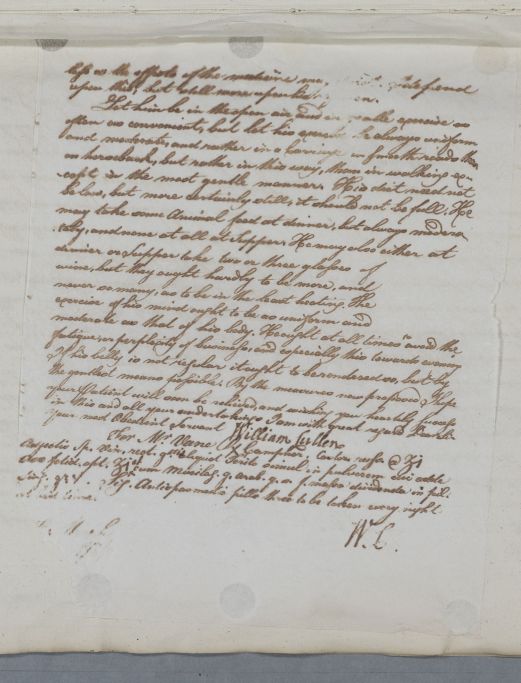 less as the effects of the medicine depend
upon this, but still more upon
Let him be in the open air and in gentle exercise as
often as convenient, but let his exercise be always uniform
and moderate, and rather in a carriage on smooth roads than
on horseback, but rather in this way, than in walking ex-
cept in the most gentle manner. His diet need not
be low, but more certainly still, it should not be full. He
may take some Animal food at dinner, but always modera-
tely, and none at all at Supper. He may also either at
dinner or Supper take two or three glasses of
wine, but they ought hardly to be more, and
never so many, as to be in the least heating. The
exercise of his mind ought to be as uniform and
moderate as that of his body. He ought at all times to avoid the
fatigue or perplexity of business, and especially this towards evening
If his belly is not regular it ought to be rendered so, but by
the gentlest means possible. By the measures now proposed I hope
your Patient will soon be relieved, and wishing you heartily success
in this and all your undertakings I am with great regard Dear Sir
Your most Obedient Servant William Cullen
For Mr. Vane Camphor.
sp. Vin. rect. terito simul in pulverem cui adde
fetid. q. s. f. massa dividenda in pil.
Sig. Antispasmodic pills three to be taken every night
W. C.